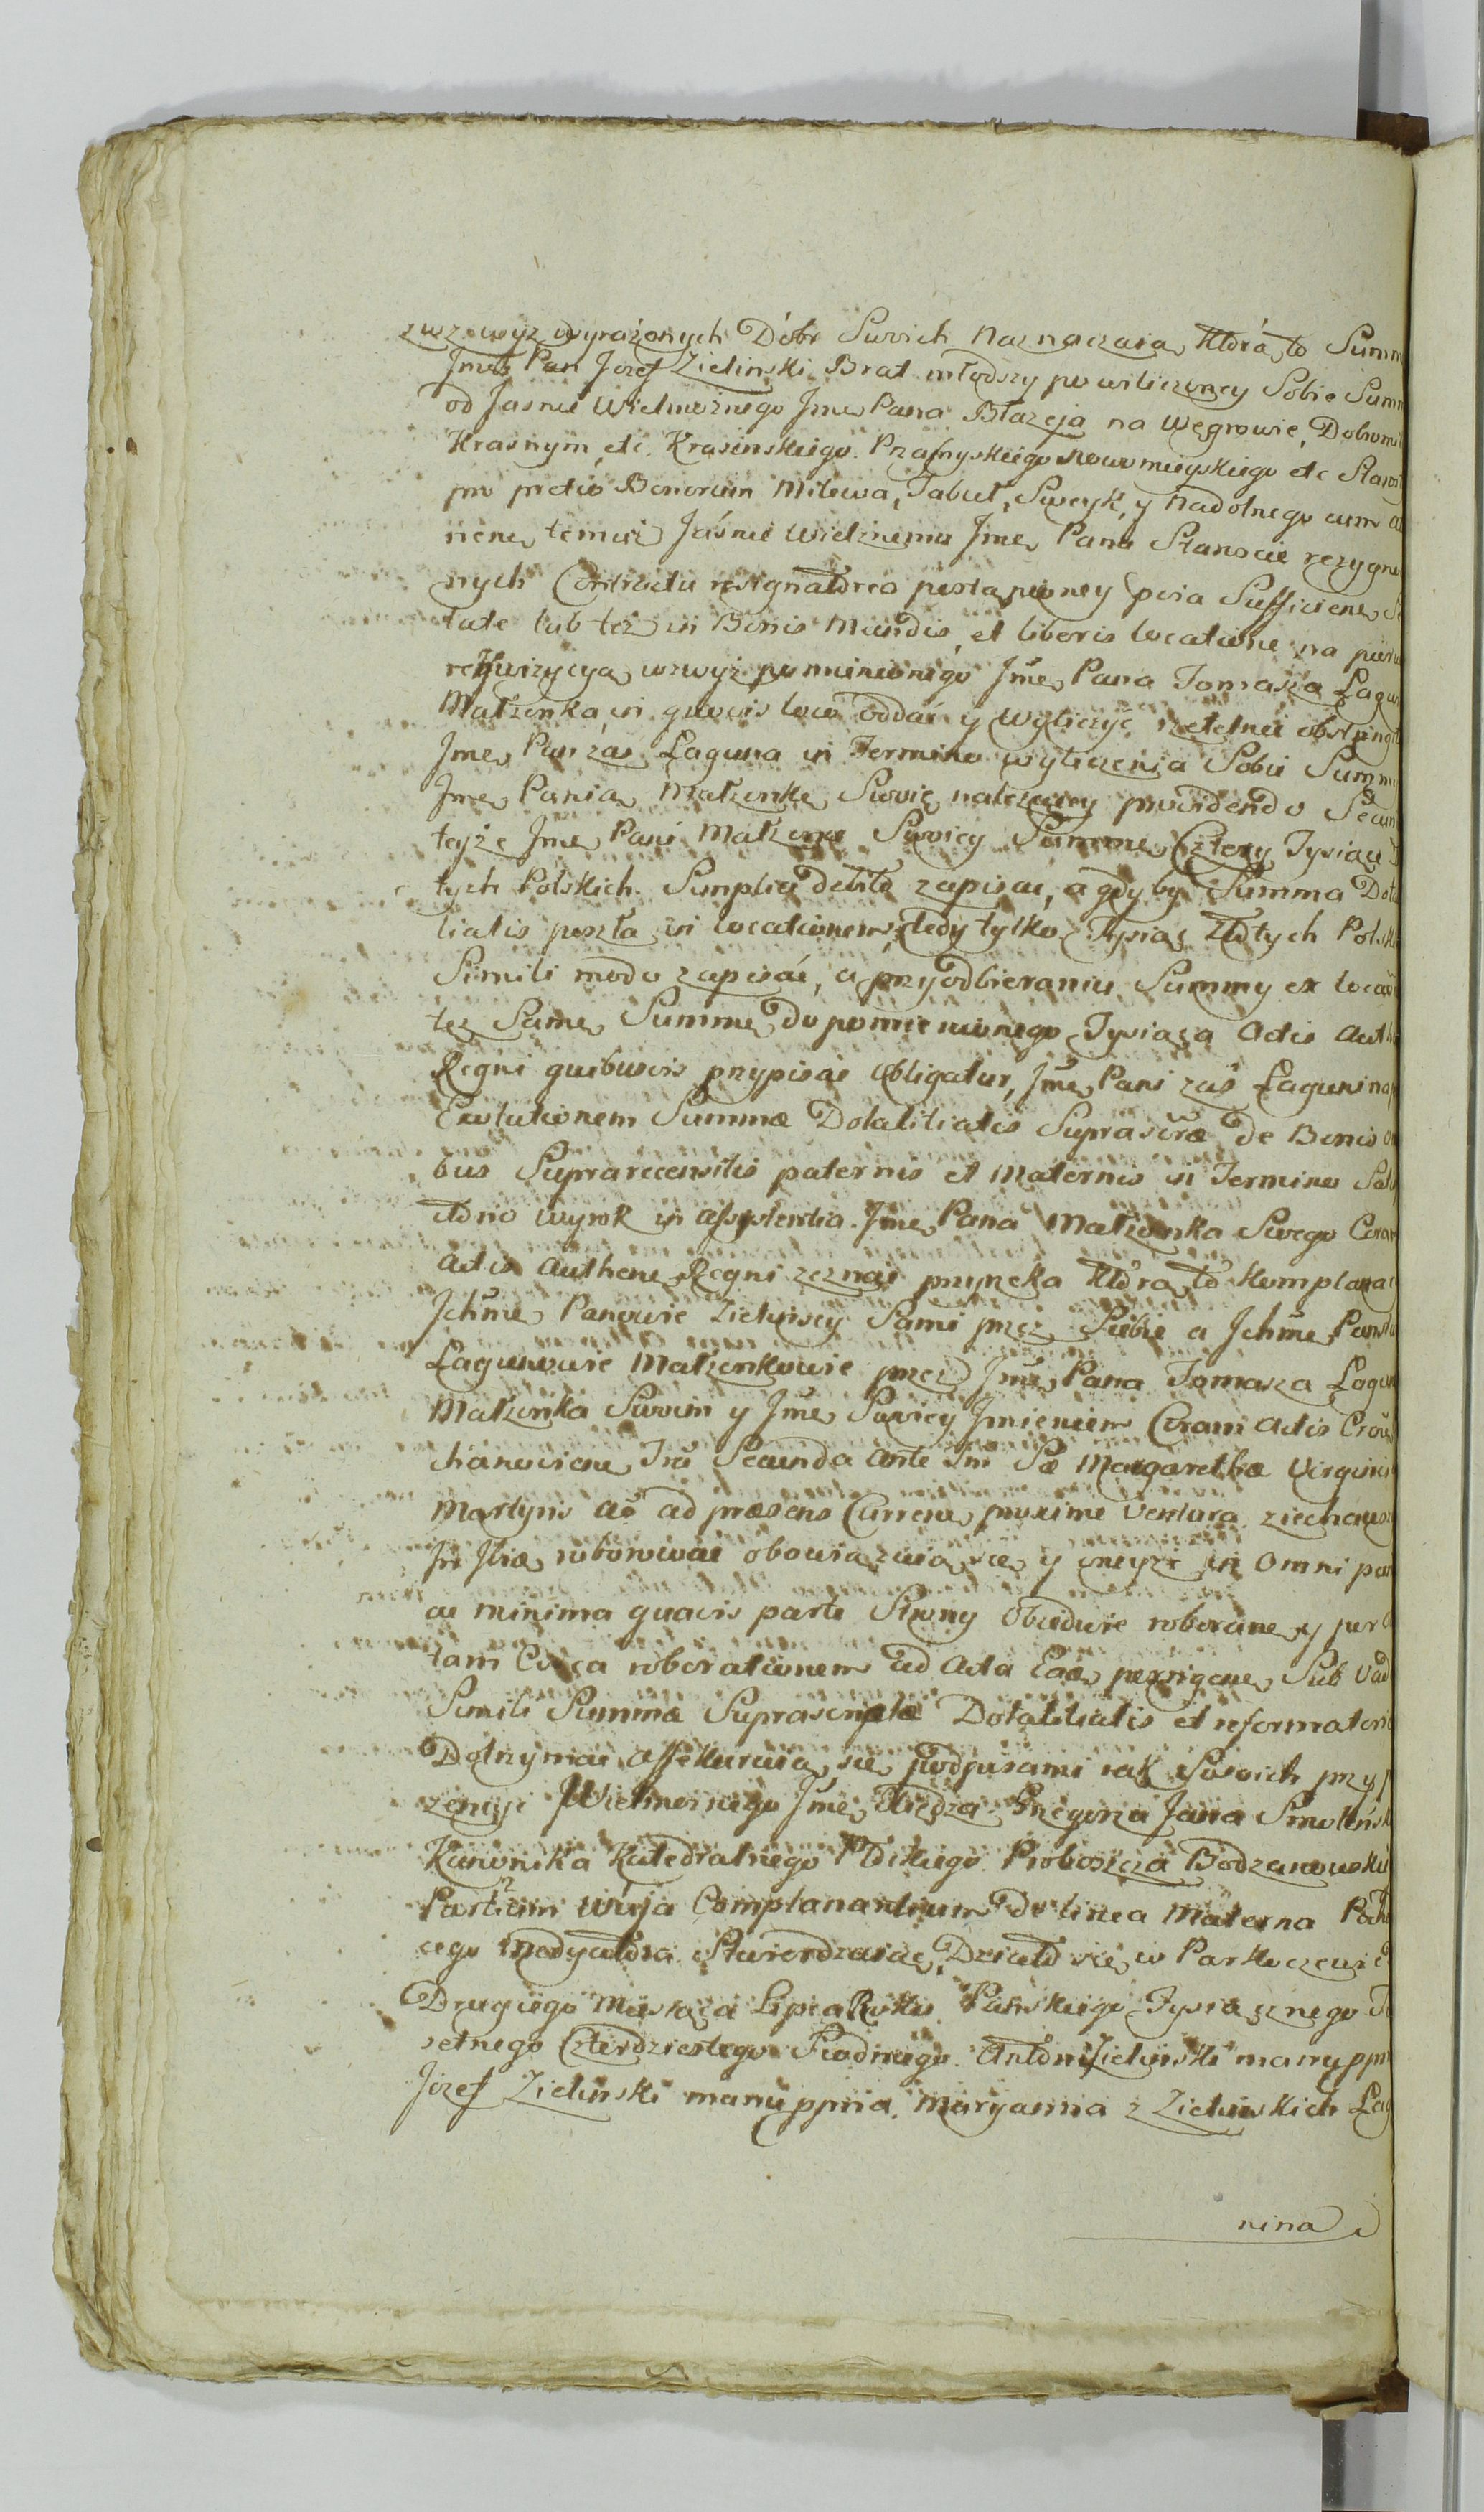 zwzwyz wyrażonych Dóbr Swoich naznaczaią, którą to Summ
Jmć Pan Jozef Zielinski Brat młodszy po wyliczoney Sobie Summ
od Jasnie Wielmoznego Jmć Pana Błazeja na Węgrowie, Dobrom
Krasnym, etc. Krasinskiego Przasnyskiego Nowomieyskiego etc Staros
pro pretio Bonorum Milewa, Tabuł, Sweyk, y Nadolnego cum
nene temuż Jásnie Wielmznemu Jmć Panu Staroscie rezygno
nych Contractu resignatorio
tate lub też in Bonis Mundis, et liberis locatione na pier
rekwizycyą wzwyż pomienionego Jmć Pana Tomasza Lagu
Małzonka in quovis loco oddać y wyliczyć rzetelnie obstringit
Jmć Pan zás Laguna in Termino wyliczenia Sobie Summ
Jmć Panią Małzonkę Swoię nalezącey providendo Secur
teyże Jmć Pani Małzonce Swoiey Summę Cztery Tysiące
tych Polskich Simplici debito zapisać, a gdy by Summa Dota
litialis poszła in locationem, tedy tylko Tysiąc Złotych Polski
Simili modo zapisáć, a przy odbieraniu Summy ex locati
tez Samę Summę do pomienionego Tysiąca Actis Auth
Regni quibusvis przypisać obligatur, Jmć Pani zaś Lagunina
Exolutionem Summæ Dotalitialis Suprascræ de Bonis
bus Suprarecensitis paternis et Maternis in Termino
wyrok in assystentia Jmć Pana Małzonka Swego Coram
Actis Authenc Regni zeznać przyrzeka którą to Komplanac
Jchmć Panowie Zielinscy Sami przez Siebie a Jchmć Panstw
Lagunowie Małzonkowie przez Jmć Pana Tomasza Lagun
Małzonka Swoim y Jmć Swoiey Jmieniem Coram Actis
chanovien Fria Secunda ante Fm Sæ Margarethæ Virginis
Martyris Ao ad præsens Curren proxime ventura
roborować obowiązuią się y oneyże in Omni par
ac minima quavis parte Strony Obiedwie roborane y per
tam roborationem ad Acta
Simili Summæ Supra scriptæ Dotalitialis et reformatori
Dotrzymać Assekuruią się podpisami rąk Swoich przy
Wielmoznego Jmć Xiędza Grzegorza Jana Smoleńsk
Kanonika Katedralnego Proboszcza Bodzanowski
Partium Wuja Complanantium De linea Materna
cego Medyatora Stwierdzaiąc, Działo się w
Drugiego Miesiąca Lipca Roku Pańskiego Tysiącznego
setnego Czterdziestego Siodmego. Antoni Zielinski manu ppri
Jozef Zielinski manu ppria. Maryanna z Zielinskich Lag
nina